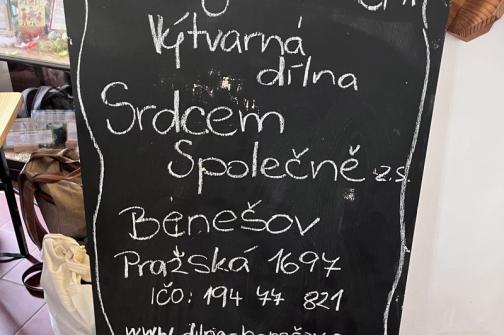 Výtvarná
dílna
Srdcem
Společně z.s.
Benešov
Pražská 1697
IČO: 194 77 821